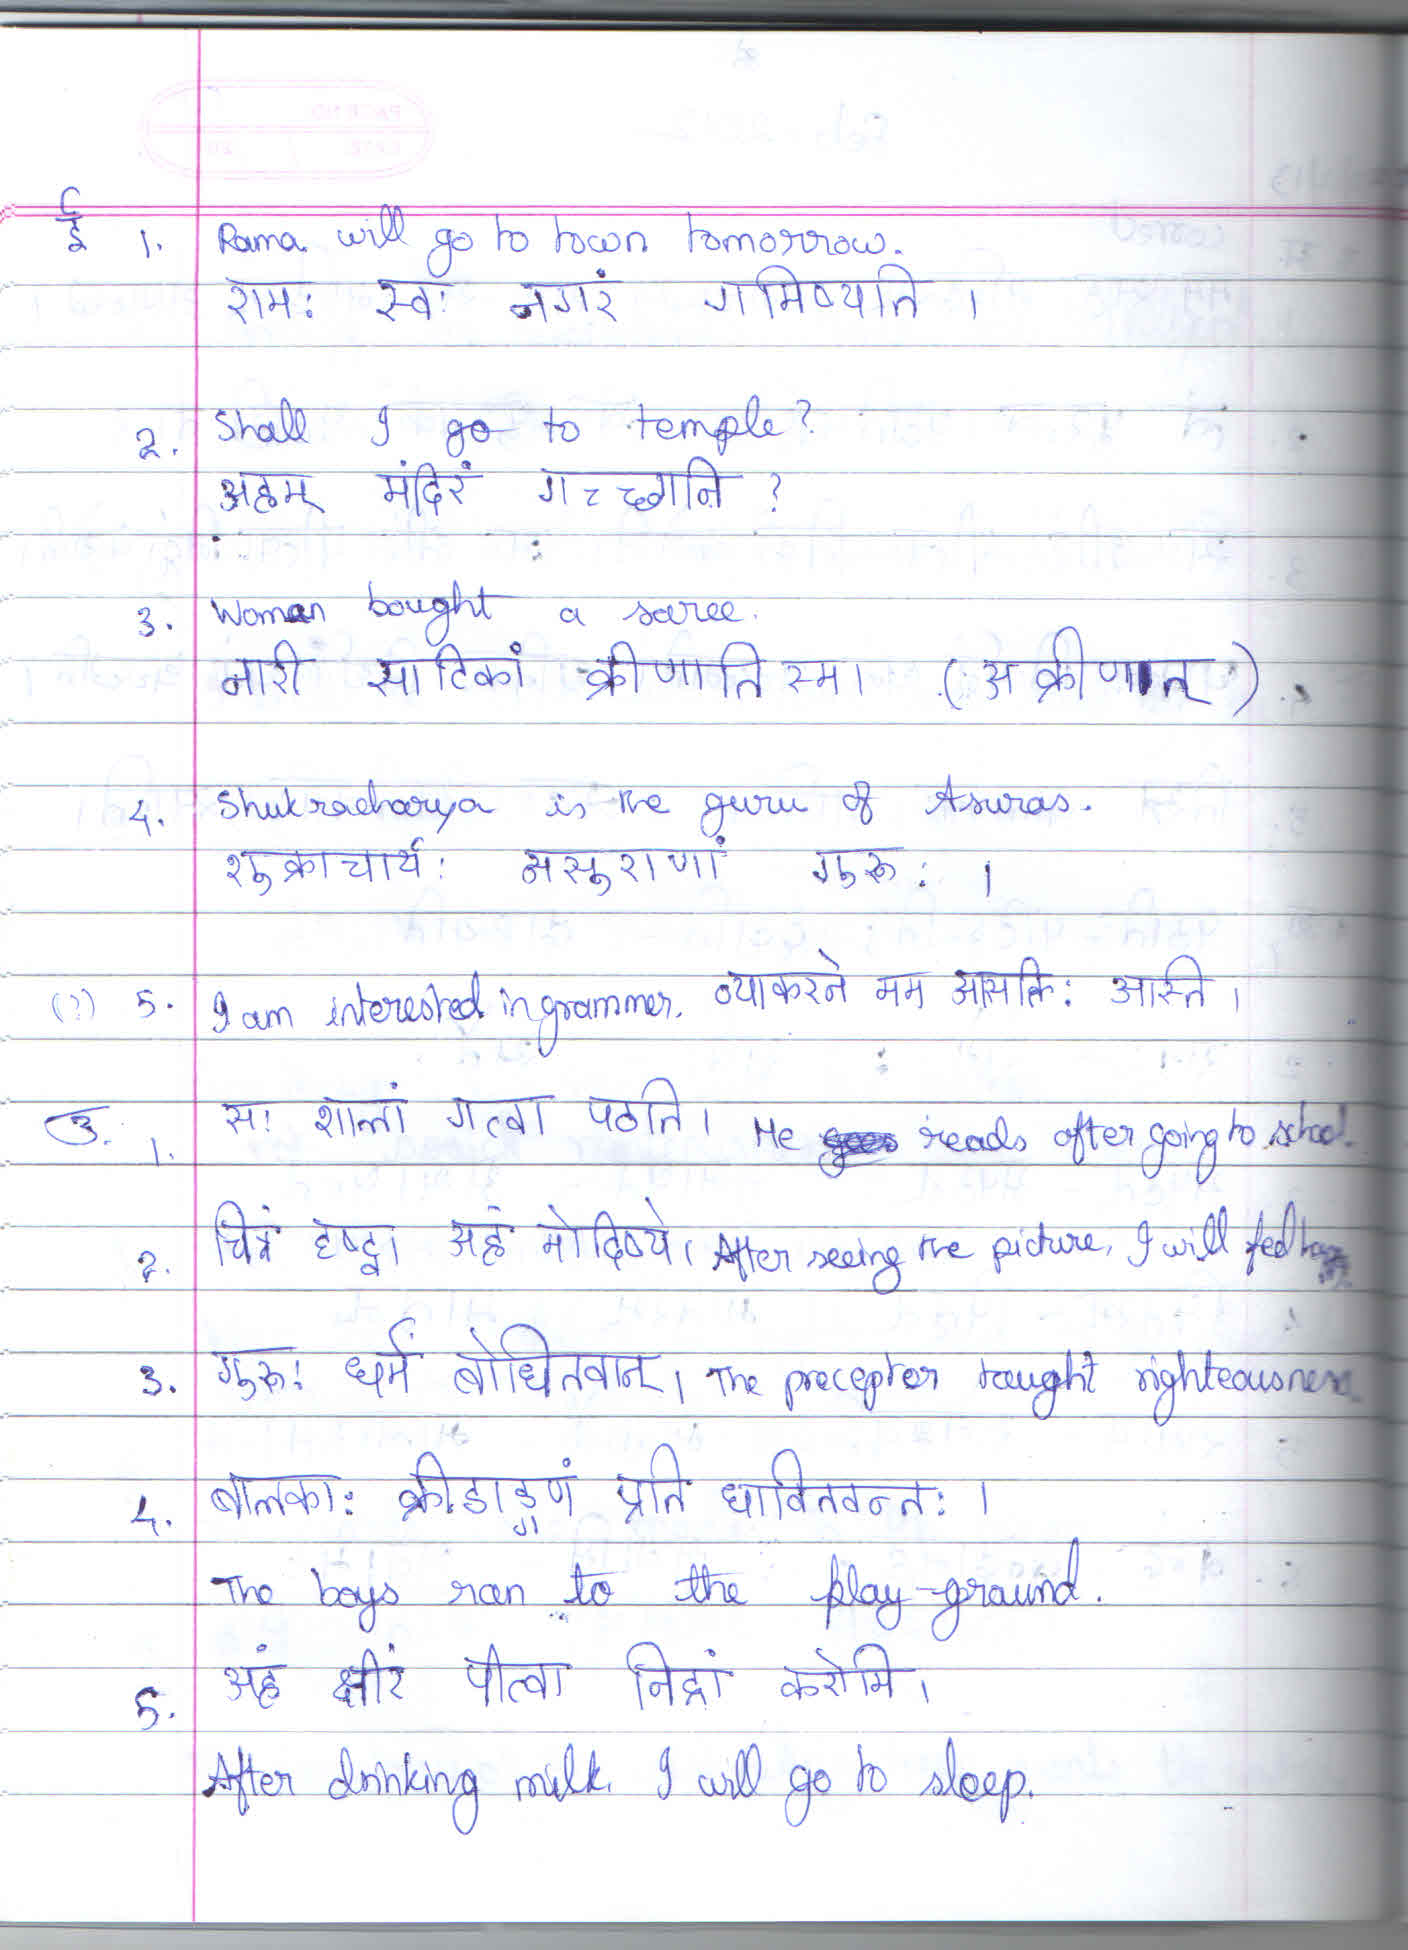 ई 1. Rama will go to town tomorrow.
रामः स्वः नगरं गमिष्यति ।
2. Shall I go to temple?
अहम् मंदिरं गच्छानि ?
3. Woman bought a saree.
नारी साटिकां क्रीणाति स्म। (अक्रीणात्)
4. Shukracharya is the guru of Asuras.
शुक्राचार्यः असुराणां गुरुः ।
(?) 5. I am interested in grammer. व्याकरने मम आसक्तिः आस्ति ।
उ. 1. सः शालां गत्वा पठति। He reads after going to school.
2. चित्रं दृष्ट्वा अहं मोदिष्ये। After seeing the picture, I will feel
3. गुरुः धर्मं बोधितवान्। The precepter taught righteousness
4. बालकाः क्रीडाङ्गणं प्रति धावितवन्तः ।
The boys ran to the play-ground.
5. अहं क्षीरं पीत्वा निद्रां करोमि।
After drinking milk. I will go to sleep.